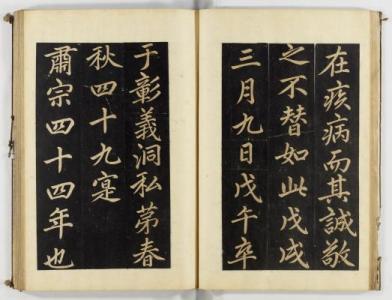 在疾病而其誠敬
之不替如此戊戌
三月九日戊午卒
于彰義洞私苐春
秋四十九寔
肅宗四十四年也